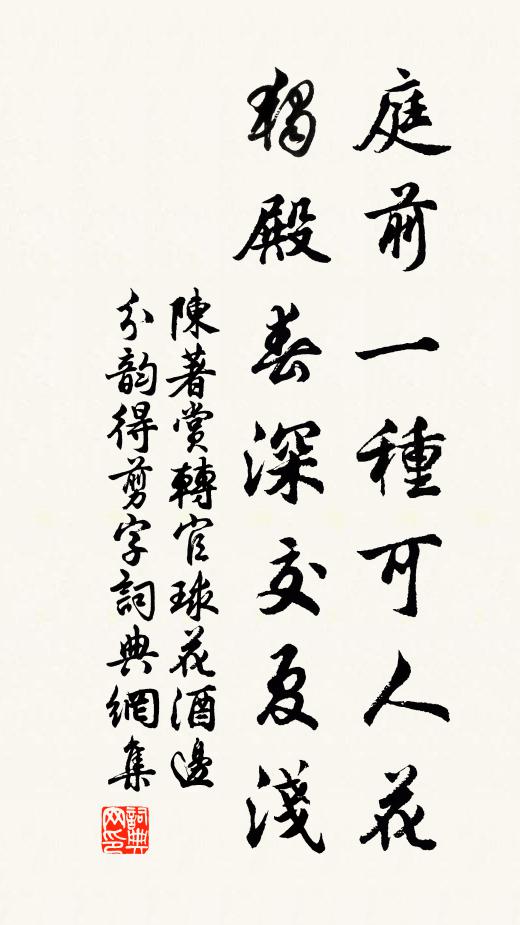 庭前一種可人花
獨殿春深交夏淺
陳著賞轉官球花酒邊
分韵得剪字詞典網集
詞典网印